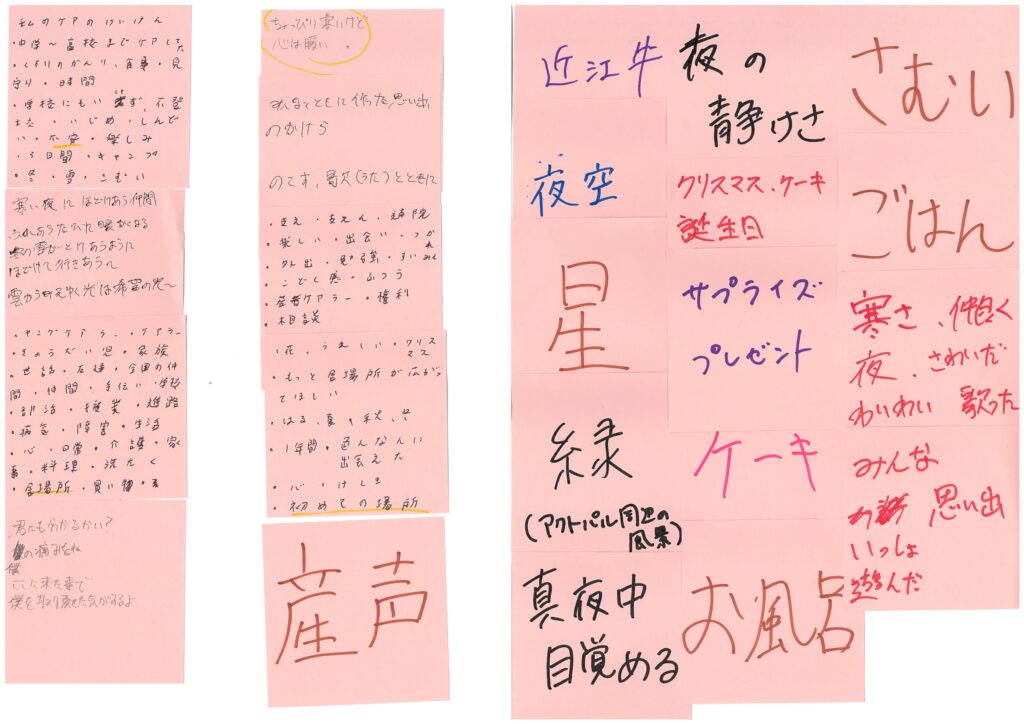 私のケアのけいけん
・中学〜高校までケアしてた
・くすりのかんり、食事・見
守り・日時間
・学校にもいけず、不登
校・いじめ・しんど
い・不安・楽しみ
・3日間・キャンプ
・冬・雪・さむい
寒い夜にほどけあう仲間
ふれあうたびに暖かくなる
冬の雪がとけあうように
ほどけて行きあう〜
雲から町えゆく光は希望の光〜
・ヤングケアラー・ケアラー
・きょうだい児・家族
・世話・友達・全国の仲
間・仲間・手伝い・学校
・部活・授業・進路
・病気・障害・生活
・心・日常・介護・家
事・料理・洗たく
・居場所・買い物・
君にも分かるかい?
僕の痛みがね
ここに来た事で
僕を取り戻せた気がするよ
ちょっぴり寒いけど
心は暖い。
みんなでともに作った思い出
のかけら
のです、歌(うた)とともに
・支え・支えん・通院
・楽しい・出会い・つかれ
・外出・勉強・すいみん
・こどく感・ふつう
・若者ケアラー・権利
・相談
・花・うれしい・クリスマス
・もっと居場所が広がっ
てほしい
・はる、夏、秋、冬
・1年間・色んな人に
出会えた
・心・けしき
・初めての場所
産声
近江牛
夜空
星
緑
(アクトパル周辺の
風景)
真夜中
目覚める
夜の
静けさ
クリスマス・ケーキ
誕生日
サプライズ
プレゼント
ケーキ
お風呂
さむい
ごはん
寒さ、仲良く
夜、さわいだ
わいわい 歌った
みんな
思い出
いっしょ
遊んだ